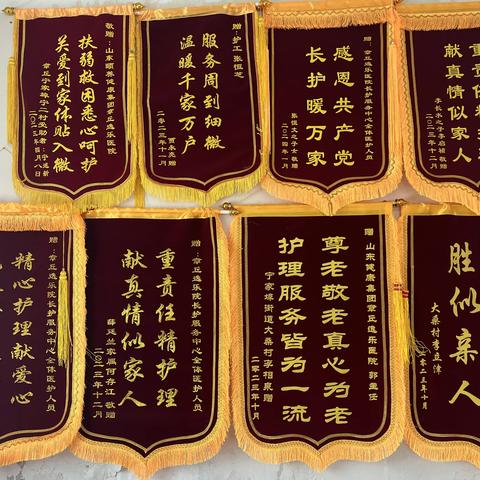 敬赠：山东颐养健康集团章丘逸乐医院
扶弱救困悉心呵护
关爱到家体贴入微
章丘宁家埠宁二村受助者：宁延新
二〇二三年四月八日
赠：护工 张恒芝
服务周到细微
温暖千家万户
贾本亮 赠
二零二三年十一月
赠：章丘逸乐医院长护服务中心全体医护人员
感恩共产党
长护暖万家
二〇二四年一月
献真情似家人
赠：章丘逸乐院长护服务中心全体医护人员
精心护理献爱心
赠：章丘逸乐医院长护服务中心全体医护人员
重责任精护理
献真情似家人
薛廷兰家属何存江 敬赠
二〇二三年十二月
赠 山东健康集团章丘逸乐医院 郭主任
尊老敬老真心为老
护理服务皆为一流
宁家埠街道大桑村李相泉赠
二零二三年十月
胜似亲人
大桑村李立津
二〇二三年十月